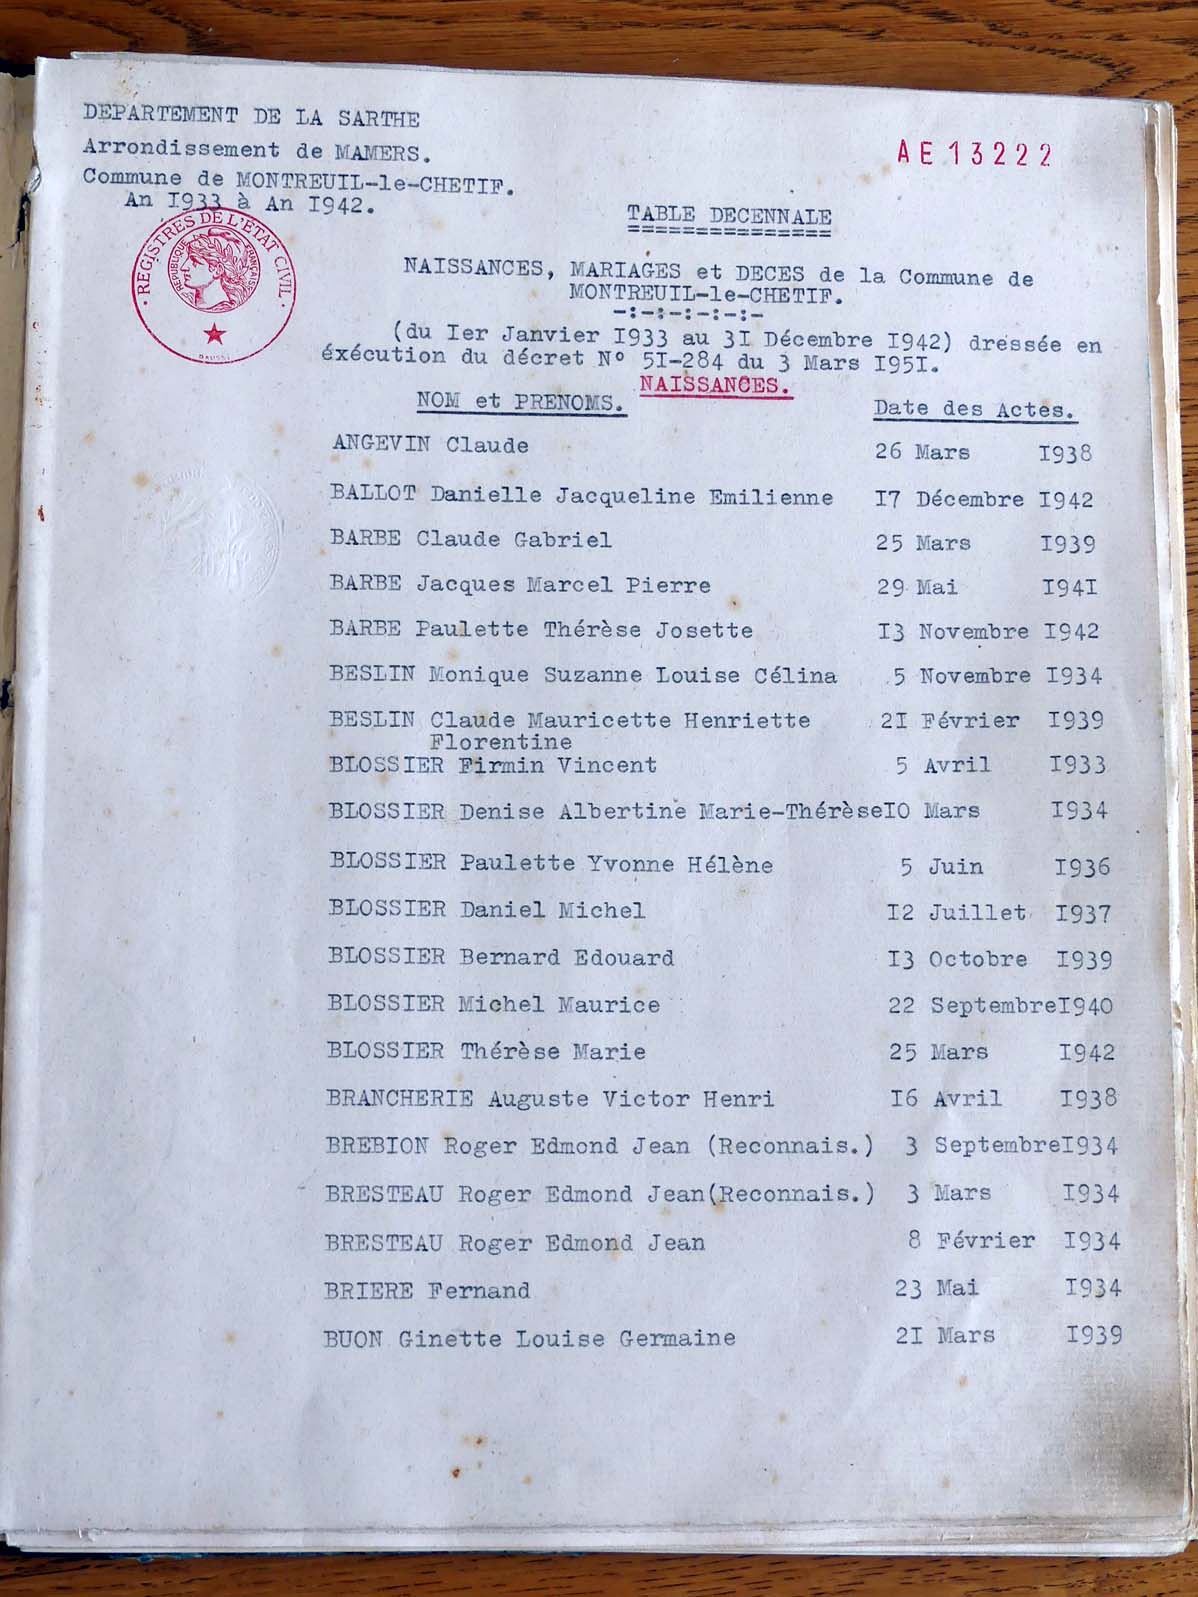 DEPARTEMENT DE LA SARTHE
Arrondissement de MAMERS.
Commune de MONTREUIL-le-CHETIF.
An I933 à An I942.
AE13222
REGISTRES DE L'ETAT CIVIL
REPUBLIQUE FRANÇAISE
TABLE DECENNALE
===============
NAISSANCES, MARIAGES et DECES de la Commune de
MONTREUIL-le-CHETIF.
-:-:-:-:-:-
(du Ier Janvier I933 au 3I Décembre I942) dressée en
éxécution du décret N° 5I-284 du 3 Mars I95I.
NAISSANCES.
NOM et PRENOMS. Date des Actes.
ANGEVIN Claude 26 Mars I938
BALLOT Danielle Jacqueline Emilienne I7 Décembre I942
BARBE Claude Gabriel 25 Mars I939
BARBE Jacques Marcel Pierre 29 Mai I94I
BARBE Paulette Thérèse Josette I3 Novembre I942
BESLIN Monique Suzanne Louise Célina 5 Novembre I934
BESLIN Claude Mauricette Henriette 2I Février I939
Florentine
BLOSSIER Firmin Vincent 5 Avril I933
BLOSSIER Denise Albertine Marie-ThérèseI0 Mars I934
BLOSSIER Paulette Yvonne Hélène 5 Juin I936
BLOSSIER Daniel Michel I2 Juillet I937
BLOSSIER Bernard Edouard I3 Octobre I939
BLOSSIER Michel Maurice 22 SeptembreI940
BLOSSIER Thérèse Marie 25 Mars I942
BRANCHERIE Auguste Victor Henri I6 Avril I938
BREBION Roger Edmond Jean (Reconnais.) 3 SeptembreI934
BRESTEAU Roger Edmond Jean(Reconnais.) 3 Mars I934
BRESTEAU Roger Edmond Jean 8 Février I934
BRIERE Fernand 23 Mai I934
BUON Ginette Louise Germaine 2I Mars I939